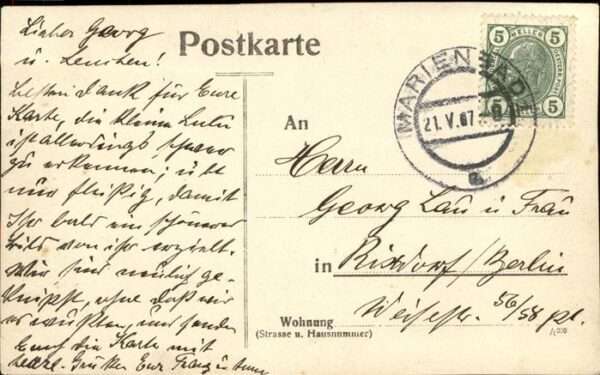 Lieber Georg
u. Lenchen!
besten Dank für Eure
Karte, die kleine Lulu
ist allerdings schwer
zu erkennen; übt
nur fleißig, damit
Ihr bald ein schöneres
Bild von ihr erzielt.
Wir sind neulich ge-
knipst, ohne daß wir
es wußten, und senden
Euch die Karte mit
Grüßen Eure Franz u.
Postkarte
5 HELLER 5
5 5
MARIENBAD
21.V.07
a
An
Herrn
Georg Lau u Frau
in Rixdorf/Berlin
Weisestr. 56/58 pt.
Wohnung
(Strasse u. Hausnummer)